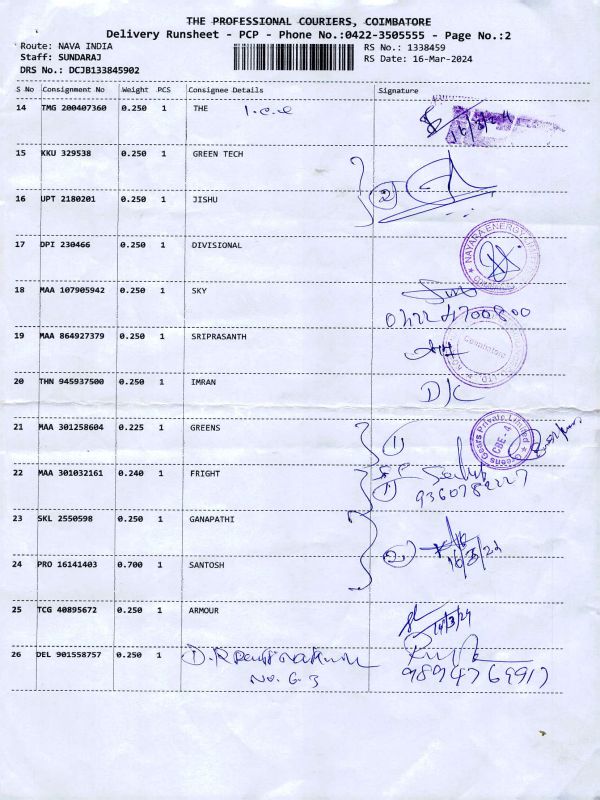 THE PROFESSIONAL COURIERS, COIMBATORE
Delivery Runsheet - PCP - Phone No.:0422-3505555 - Page No.:2
Route: NAVA INDIA
RS No.: 1338459
Staff: SUNDARAJ
RS Date: 16-Mar-2024
DRS No.: DCJB133845902
S No Consignment No Weight PCS Consignee Details Signature
14 TMG 200407360 0.250 1 THE I.C.E 16/3/24
15 KKU 329538 0.250 1 GREEN TECH
16 UPT 2180201 0.250 1 JISHU 2
17 DPI 230466 0.250 1 DIVISIONAL NAYARA ENERGY
18 MAA 107905942 0.250 1 SKY
04224700800
19 MAA 864927379 0.250 1 SRIPRASANTH Coimbatore
20 THN 945937500 0.250 1 IMRAN
21 MAA 301258604 0.225 1 GREENS 1 Greens Gears Private Limited CBE-4
22 MAA 301032161 0.240 1 FRIGHT 1
9360782227
23 SKL 2550598 0.250 1 GANAPATHI
2 16/3/24
24 PRO 16141403 0.700 1 SANTOSH
25 TCG 40895672 0.250 1 ARMOUR
26 DEL 901558757 0.250 1
No. G.3 9894769917